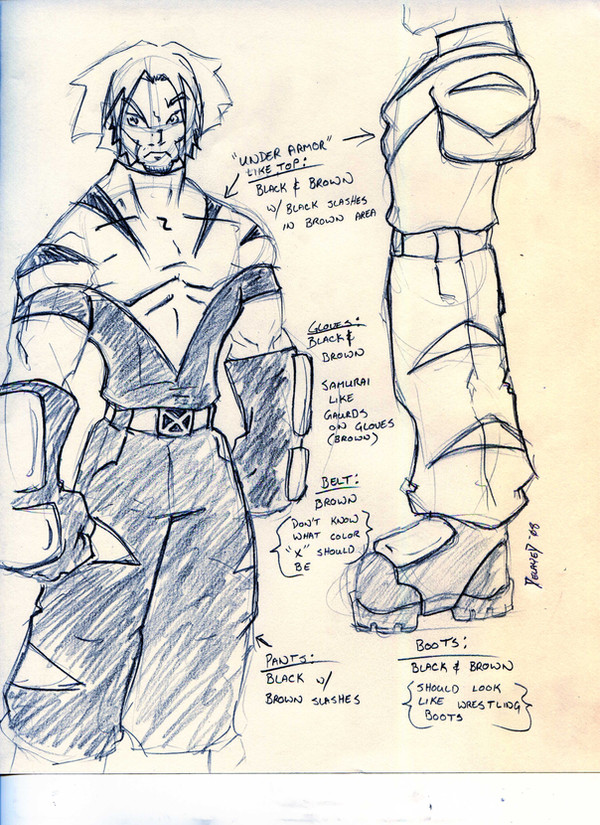 "UNDER ARMOR"
LIKE TOP:
BLACK & BROWN
W/ BLACK SLASHES
IN BROWN AREA
GLOVES:
BLACK &
BROWN
SAMURAI
LIKE
GAURDS
ON GLOVES
(BROWN)
BELT:
BROWN
{DON'T KNOW
WHAT COLOR
"X" SHOULD
BE}
PANTS:
BLACK W/
BROWN SLASHES
BOOTS:
BLACK & BROWN
{SHOULD LOOK
LIKE WRESTLING
BOOTS}
'08